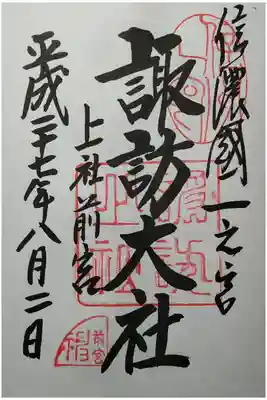 信濃國一之宮
諏訪大社
上社前宮
平成二十七年八月二日